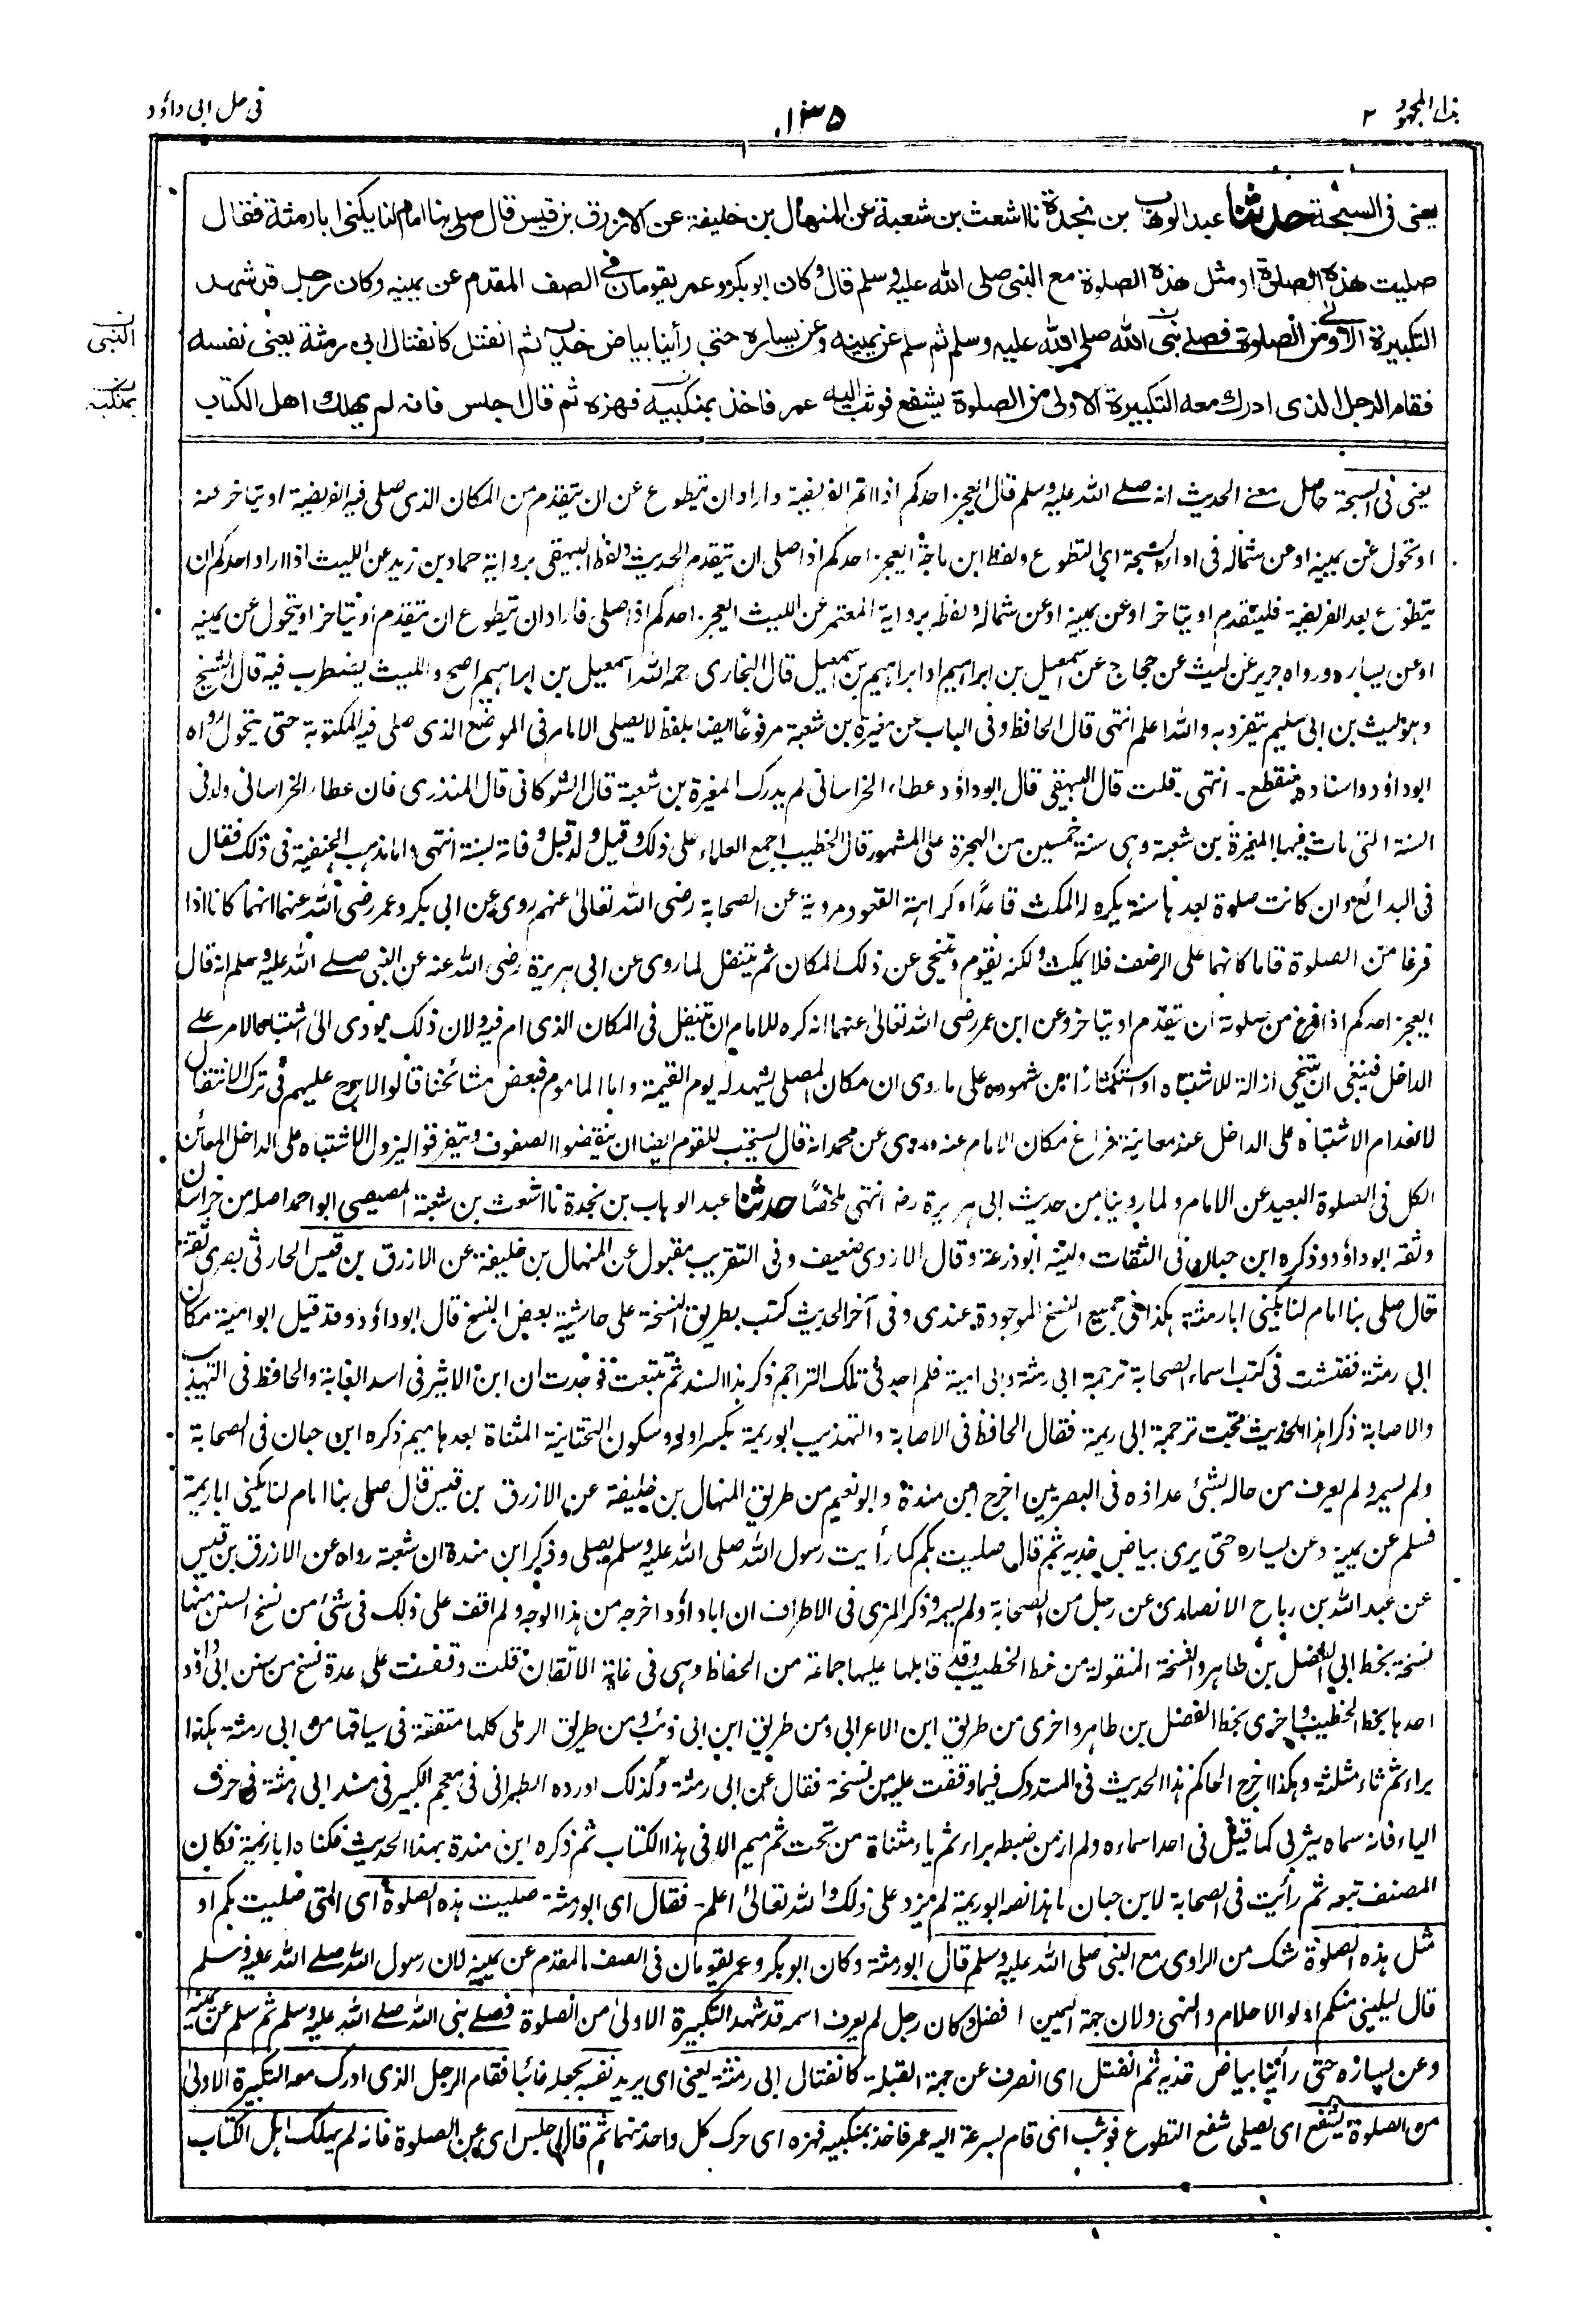 بذل المجهود ٢
١٣٥
في حل ابی داؤد
يعنی فی السبحة حدثنا عبد الوهاب بن نجدة نا اشعث بن شعبة عن المنهال بن خليفة عن الازرق بن قيس قال صلی بنا امام لنا يكنی ابا رمثة فقال
صليت هذه الصلوة او مثل هذه الصلوة مع النبی صلی الله عليه وسلم قال وكان ابو بكر وعمر يقومان فی الصف المقدم عن يمينه وكان رجل قد شهد
التكبيرة الاولی من الصلوة فصلے نبی الله صلی الله عليه وسلم ثم سلم عن يمينه وعن يساره حتی رأينا بياض خديه ثم انفتل كانفتال ابی رمثة يعنی نفسه
فقام الرجل الذی ادرك معه التكبيرة الاولی من الصلوة يشفع فوثب اليه عمر فاخذ بمنكبيه فهزه ثم قال اجلس فانه لم يهلك اهل الكتاب
النبی
بمنكبه
يعنی فی السبحة حاصل معنے الحديث انه صلے الله عليه وسلم قال ايعجز احدكم اذا اتم الفريضة واراد ان يتطوع عن ان يتقدم من المكان الذی صلی فيه الفريضة او يتاخر عنه
او يتحول عن يمينه او عن شماله فی اداء السبحة ای التطوع ولفظ ابن ماجة ايعجز احدكم اذا صلی ان يتقدم الحديث ولفظ البيهقی برواية حماد بن زيد عن الليث اذا اراد احدكم ان
يتطوع بعد الفريضة فليتقدم او يتاخر او عن يمينه او عن شماله ولفظه برواية المعتمر عن الليث ايعجز احدكم اذا صلی فاراد ان يتطوع ان يتقدم او يتاخر او يتحول عن يمينه
او عن يساره ورواه جرير عن ليث عن حجاج عن اسمعيل بن ابراهيم او ابراهيم بن اسمعيل قال البخاری رحمه الله اسمعيل بن ابراهيم اصح والليث يضطرب فيه قال الشيخ
وهو ليث بن ابی سليم يتفرد به والله اعلم انتهی قال الحافظ وفی الباب عن مغيرة بن شعبة مرفوعًا ايضا بلفظ لا يصلی الامام فی الموضع الذی صلی فيه المكتوبة حتی يتحول رواه
ابو داؤد واسناده منقطع۔ انتهی۔ قلت قال البيهقی قال ابو داؤد عطاء الخراسانی لم يدرك المغيرة بن شعبة قال الشوكانی قال المنذری فان عطاء الخراسانی ولد فی
السنة التی مات فيها المغيرة بن شعبة وهی سنة خمسين من الهجرة علی المشهور قال الخطيب اجمع العلماء علی ذلك وقيل ولد قبل وفاته لسنة انتهی واما مذهب الحنفية فی ذلك فقال
فی البدائع وان كانت صلوة بعدها سنة يكره له المكث قاعدًا وكراهة القعود مروية عن الصحابة رضی الله تعالیٰ عنهم روی عن ابی بكر وعمر رضی الله عنهما انهما كانا اذا
فرغا من الصلوة قاما كانهما علی الرضف فلا يمكث ولكنه يقوم ويتنحی عن ذلك المكان ثم يتنفل لما روی عن ابی هريرة رضی الله عنه عن النبی صلے الله عليه وسلم انه قال
ايعجز احدكم اذا فرغ من صلوته ان يتقدم او يتاخر وعن ابن عمر رضی الله تعالیٰ عنهما انه كره للامام ان يتنفل فی المكان الذی ام فيه ولان ذلك يودی الی اشتباه الامر علے
الداخل فينبغی ان يتنحی ازالة للاشتباه او استكثارًا من شهوده علی ما روی ان مكان المصلی يشهد له يوم القيمة واما الماموم فبعض مشائخنا قالوا لا حرج عليهم فی ترك الانتقال
لانعدام الاشتباه علی الداخل عند معاينة فراغ مكان الامام عنه وروی عن محمد انه قال يستحب للقوم ايضا ان ينقضوا الصفوف ويتفرقوا ليزول الاشتباه علی الداخل المعائن
الكل فی الصلوة البعيد عن الامام ولما روينا من حديث ابی هريرة رضه انتهی ملخصًا حدثنا عبد الوهاب بن نجدة نا اشعث بن شعبة المصيصی ابو احمد اصله من خراسان
وثقه ابو داؤد وذكره ابن حبان فی الثقات ولينه ابو ذرعة وقال الازدی ضعيف وفی التقريب مقبول عن المنهال بن خليفة عن الازرق بن قيس الحارثی بصری ثقة
قال صلی بنا امام لنا يكنی ابا رمثة هكذا فی جميع النسخ الموجودة عندی وفی آخر الحديث كتب بطريق النسخة علی حاشية بعض النسخ قال ابو داؤد وقد قيل ابو امية مكان
ابی رمثة ففتشت فی كتب اسماء الصحابة ترجمة ابی رمثة وابی امية فلم اجد فی تلك التراجم ذكر هذا السند ثم تتبعت فوجدت ان ابن الاثير فی اسد الغابة والحافظ فی التهذيب
والاصابة ذكرا هذا الحديث تحت ترجمة ابی ريمة فقال الحافظ فی الاصابة والتهذيب ابو ريمة بكسر اوله وسكون التحتانية المثناة بعدها ميم ذكره ابن حبان فی الصحابة
ولم يسمه ولم يعرف من حاله بشئ عداده فی البصريين اخرج ابن مندة وابو نعيم من طريق المنهال بن خليفة عن الازرق بن قيس قال صلی بنا امام لنا يكنی ابا ريمة
فسلم عن يمينه وعن يساره حتی يری بياض خديه ثم قال صليت بكم كما رأيت رسول الله صلی الله عليه وسلم يصلی وذكر ابن مندة ان شعبة رواه عن الازرق بن قيس
عن عبد الله بن رباح الانصاری عن رجل من الصحابة ولم يسمه وذكر المزی فی الاطراف ان ابا داؤد اخرجه من هذا الوجه ولم اقف علی ذلك فی شئ من نسخ السنن منها
نسخة بخط ابی الفضل بن طاهر والنسخة المنقولة من خط الخطيب وقد قابلها عليها جماعة من الحفاظ وهی فی غاية الاتقان قلت وقفت علی عدة نسخ من سنن ابی داؤد
احدها بخط الخطيب واخری بخط الفضل بن طاهر واخری من طريق ابن الاعرابی ومن طريق ابن ابی ذئب ومن طريق الرملی كلها متفقة فی سياقها من ابی رمثة هكذا
براء ثم ثاء مثلثة وهكذا اخرج الحاكم هذا الحديث فی المستدرك فيما وقفت عليه من نسخة فقال عن ابی رمثة وكذلك اورده الطبرانی فی معجم الكبير فی مسند ابی رمثة فی حرف
الياء فانه سماه يثربی كما قيل فی احد اسماءه ولم ار من ضبطه براء ثم ياء مثناة من تحت ثم ميم الا فی هذا الكتاب ثم ذكره ابن مندة بهذا الحديث فكناه ابا ريمة فكان
المصنف تبعه ثم رأيت فی الصحابة لابن حبان ما هذا نصه ابو ريمة لم يزد علی ذلك والله تعالیٰ اعلم۔ فقال ای ابو رمثة صليت هذه الصلوة ای التی صليت بكم او
مثل هذه الصلوة شك من الراوی مع النبی صلی الله عليه وسلم قال ابو رمثة وكان ابو بكر وعمر يقومان فی الصف المقدم عن يمينه لان رسول الله صلے الله عليه وسلم
قال ليلينی منكم اولو الاحلام والنهی ولان جهة اليمين افضل وكان رجل لم يعرف اسمه قد شهد التكبيرة الاولیٰ من الصلوة فصلے نبی الله صلے الله عليه وسلم ثم سلم عن يمينه
وعن يساره حتی رأينا بياض خديه ثم انفتل ای انصرف عن جهة القبلة كانفتال ابی رمثة يعنی ای يريد نفسه بجعله غائبا فقام الرجل الذی ادرك معه التكبيرة الاولیٰ
من الصلوة يشفع ای يصلی شفع التطوع فوثب ای قام بسرعة اليه عمر فاخذ بمنكبيه فهزه ای حرك كل واحد منهما ثم قال اجلس ای عن الصلوة فانه لم يهلك اهل الكتاب